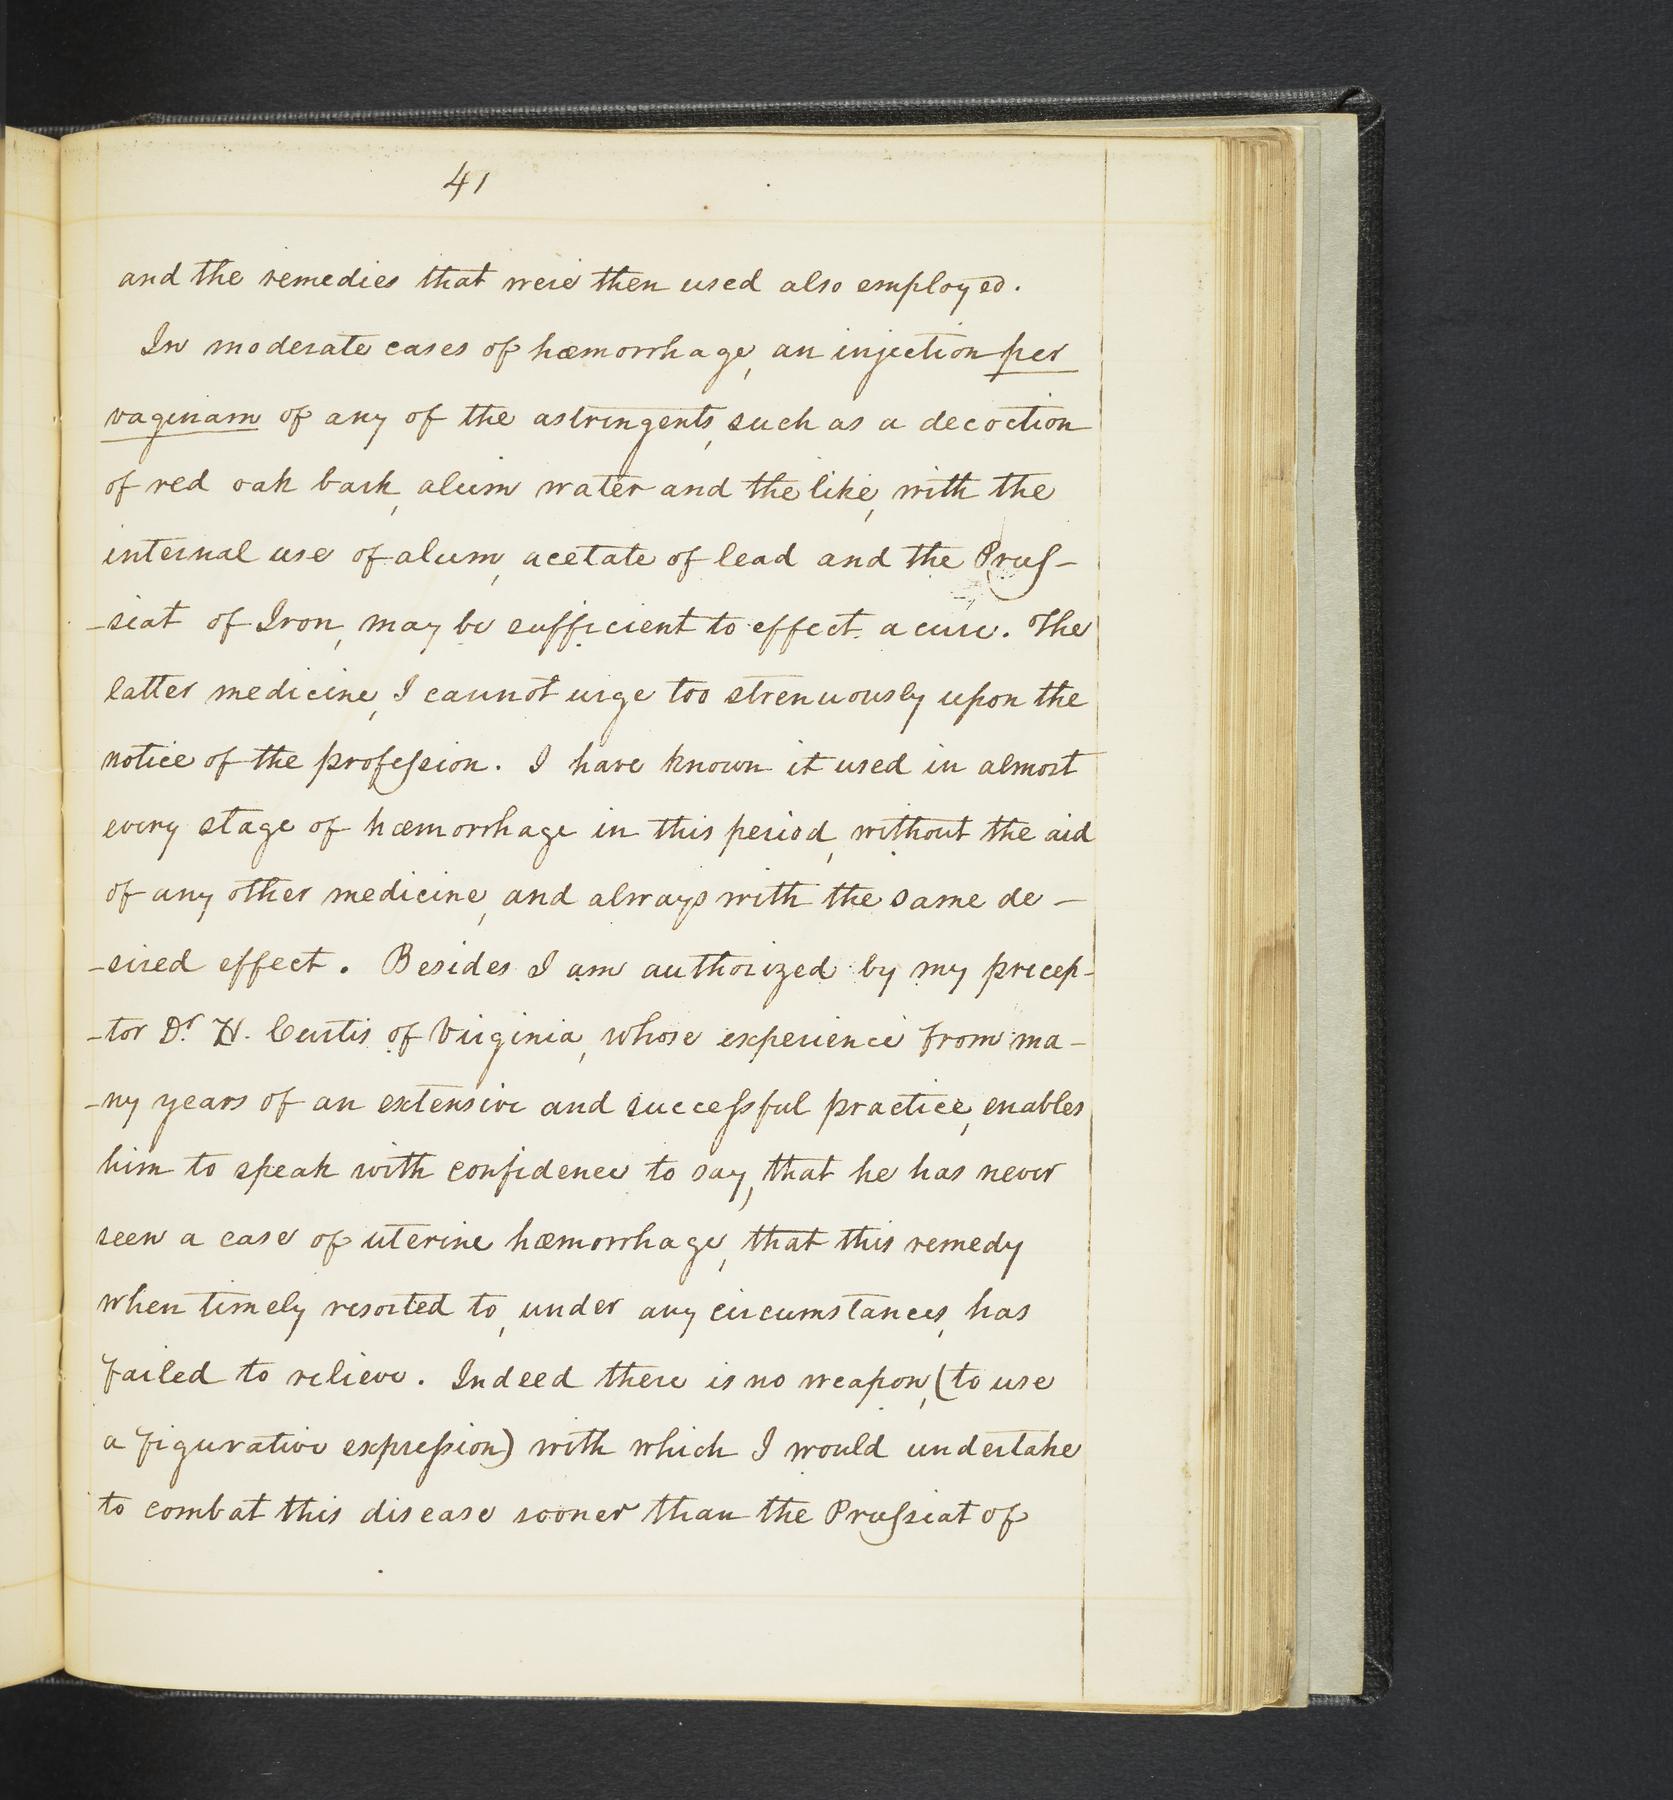 41
and the remedies that were then used also employed.
In moderate cases of hæmorrhage, an injection per
vaginam of any of the astringents, such as a decoction
of red oak bark, alum water and the like, with the
internal use of alum, acetate of lead and the Pruſ-
-siat of Iron, may be sufficient to effect a cure. The
latter medicine, I cannot urge too strenuously upon the
notice of the profeſsion. I have known it used in almost
every stage of hæmorrhage in this period, without the aid
of any other medicine, and always with the same de-
-sired effect. Besides I am authorized by my precep-
-tor Dr. H. Curtis of Virginia, whose experience from ma-
-ny years of an extensive and succeſsful practice, enables
him to speak with confidence to say, that he has never
seen a case of uterine hæmorrhage, that this remedy
when timely resorted to, under any circumstances, has
failed to relieve. Indeed there is no weapon, (to use
a figurative expreſsion) with which I would undertake
to combat this disease sooner than the Pruſsiat of